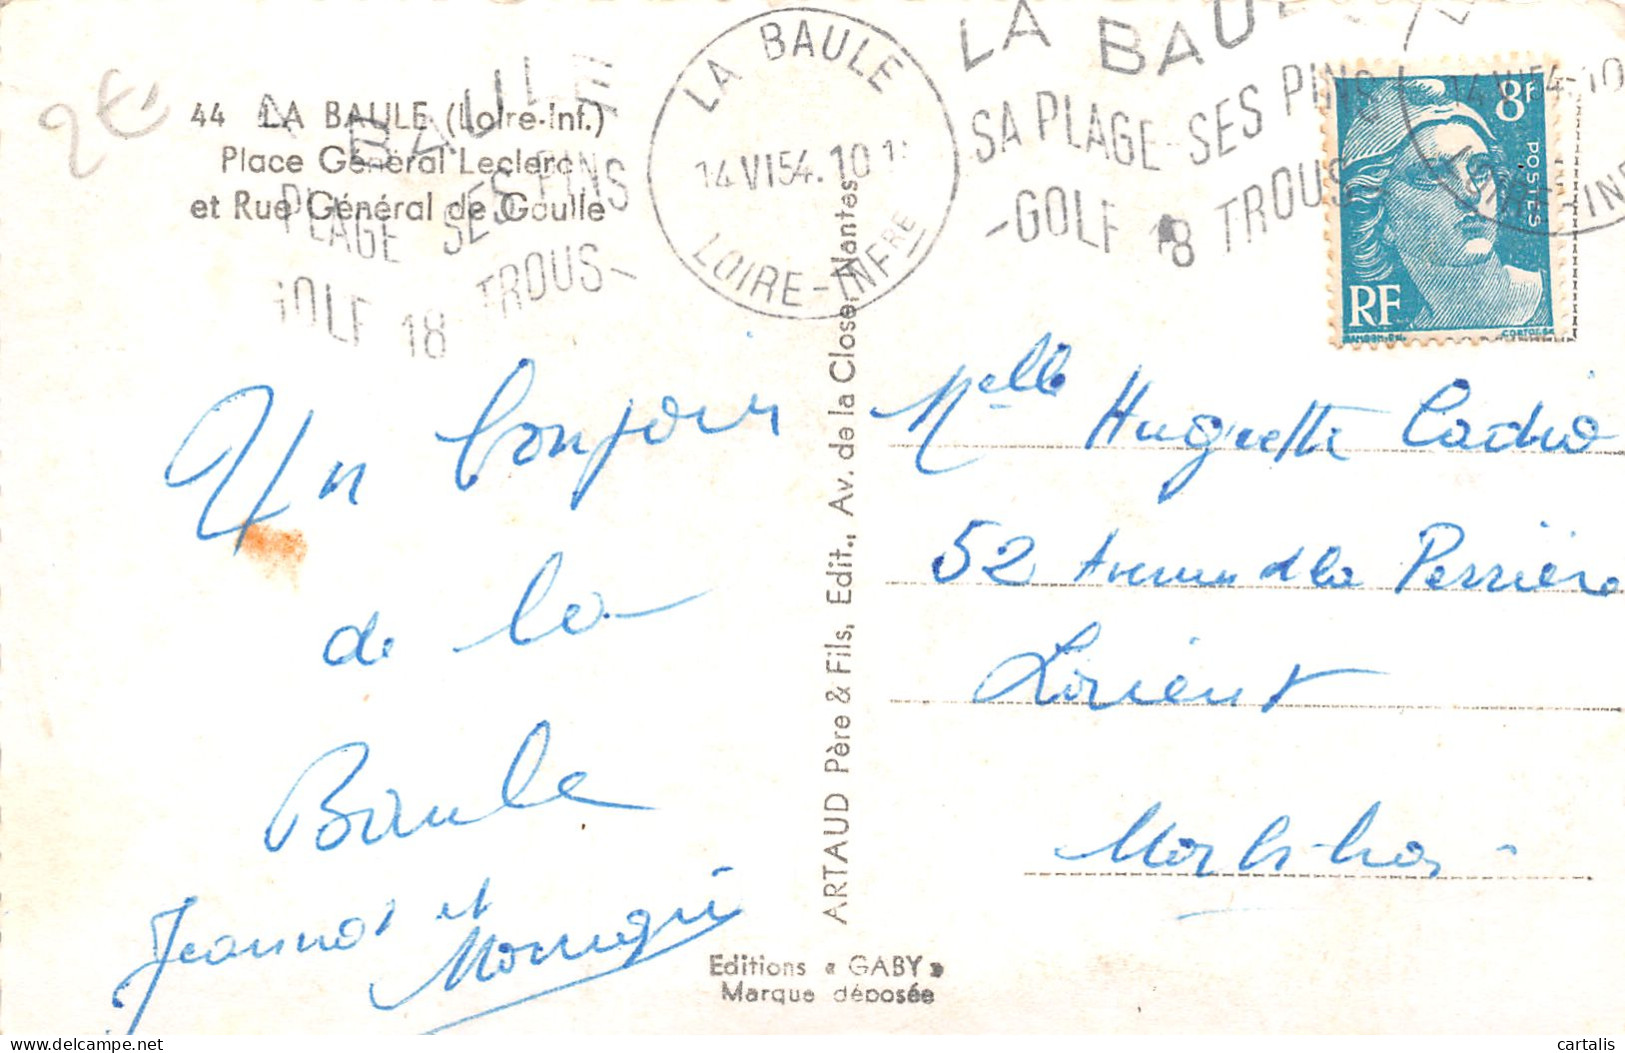 2€
44 LA BAULE (Loire-Inf.)
Place Général Leclerc
et Rue Général de Gaulle
LA BAULE
PLAGE SES PINS
GOLF 18 TROUS-
LA BAULE
14 VI 54. 10
LOIRE-INFRE
LA BAULE
SA PLAGE-SES PINS
-GOLF 18 TROUS
14 VI 54. 10
LOIRE-INF
8F
POSTES
RF
GANDON
CORTOT SC
Un bonjour
de la
Baule
Jeannot et
ARTAUD Père & Fils, Edit., Av. de la Close, Nantes
Melle Huguette Cadio
52 Avenue de la Perrière
Lorient
Morbihan
Editions « GABY »
Marque déposée
cartalis
delcampe.net